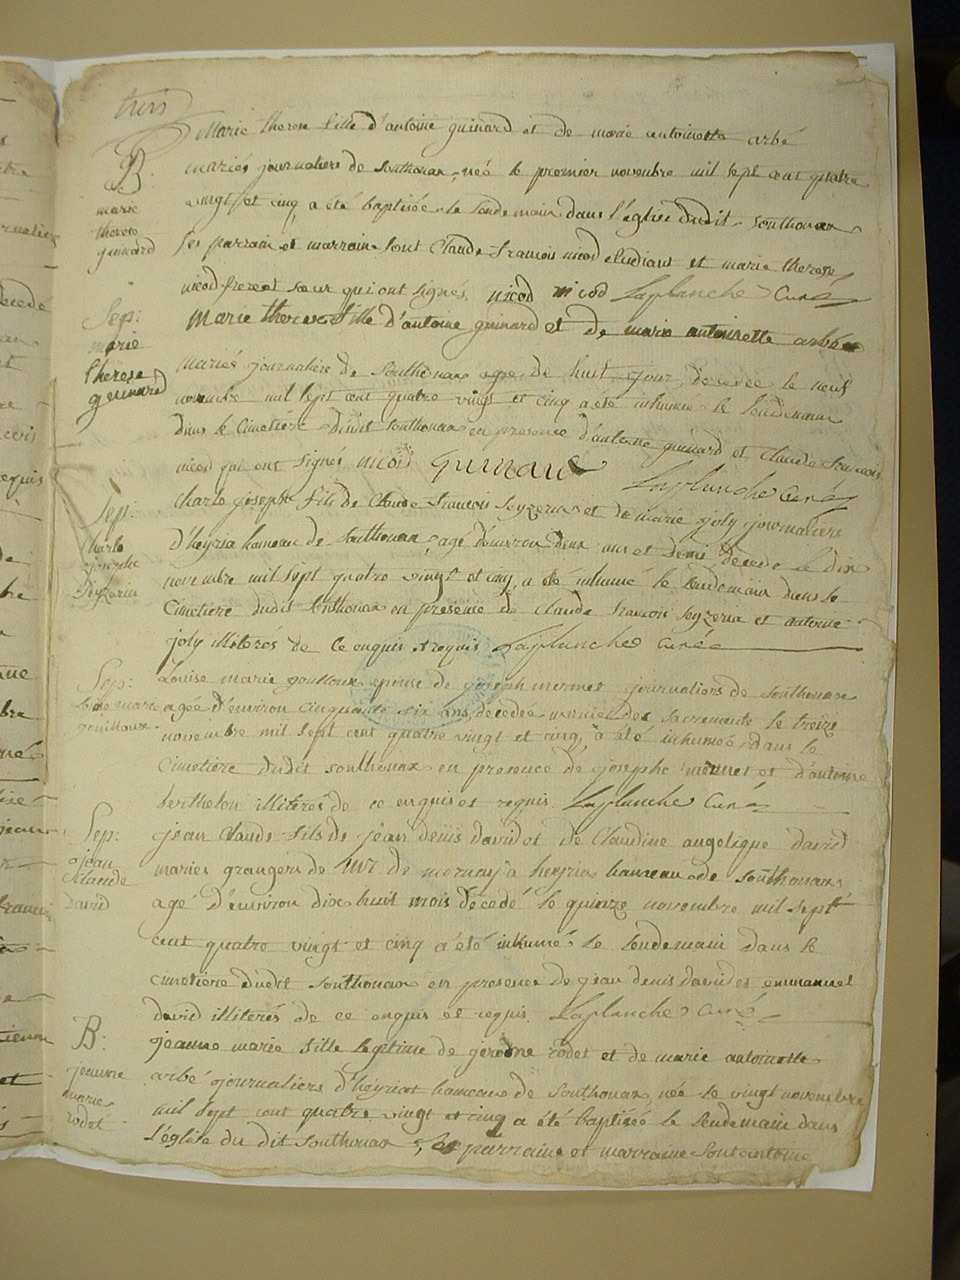 B.
marie
therese
guinard
Marie therese fille d'antoine guinard et de marie antoinette arbé
mariés journaliers de Southonax, née le premier novembre mil sept cent quatre
vingt et cinq a été baptisée le lendemain dans l'église dudit Southonax
ses parrain et marraine sont Claude francois nicod etudiant et marie therese
nicod frere et sœur qui ont signés nicod nicod Laplanche Curé
Sep:
marie
therese
guinard
Marie therese fille d'antoine guinard et de marie antoinette arbé
mariés journaliers de Southonax agée de huit jour, decedée le neuf
novembre mil sept cent quatre vingt et cinq a été inhumée le lendemain
dans le Cimetière dudit Southonax en presence d'antoine guinard et Claude francois
nicod qui ont signés nicod Guinard Laplanche Curé
Sep:
Charle
josephe
Seyzeria
Charle josephe fils de Claude francois Seyzeria et de marie joly journaliers
d'heyria hameau de Southonax, agé d'environ deux ans et demi decedé le dix
novembre mil sept quatre vingt et cinq, a été inhumé le lendemain dans le
Cimetière dudit Southonax en présence de Claude francois Seyzeria et antoine
joly illiteres de ce enquis et requis Laplanche Curé
Sep:
marie
gouilloux
Louise marie gouilloux epouse de joseph mermet journaliers de Southonax
agée d'environ cinquante six ans, decedée munie des sacrements le treize
novembre mil sept cent quatre vingt et cinq, a été inhumée, dans le
Cimetière dudit Southonax en presence de josephe mermet et d'antoine
berthelon illiterés de ce enquis et requis Laplanche Curé
Sep:
jean
Claude
david
jean Claude fils de jean denis david et de Claudine angelique david
mariés grangers de de mornay à heyria hameau de Southonax,
agé d'environ dix huit mois decedé le quinze novembre mil sept
cent quatre vingt et cinq a été inhumé le lendemain dans le
cimetière dudit Southonax en presence de jean denis david et emmanuel
david illiterés de ce enquis et requis. Laplanche Curé
B.
jeanne
marie
rodet
jeanne marie fille legitime de jerome rodet et de marie antoinette
arbé journaliers d'heyriat hameau de Southonax, née le vingt novembre
mil sept cent quatre vingt et cinq a été baptisée le lendemain dans
l'église du dit Southonax, ses parrain et marraine sont antoine